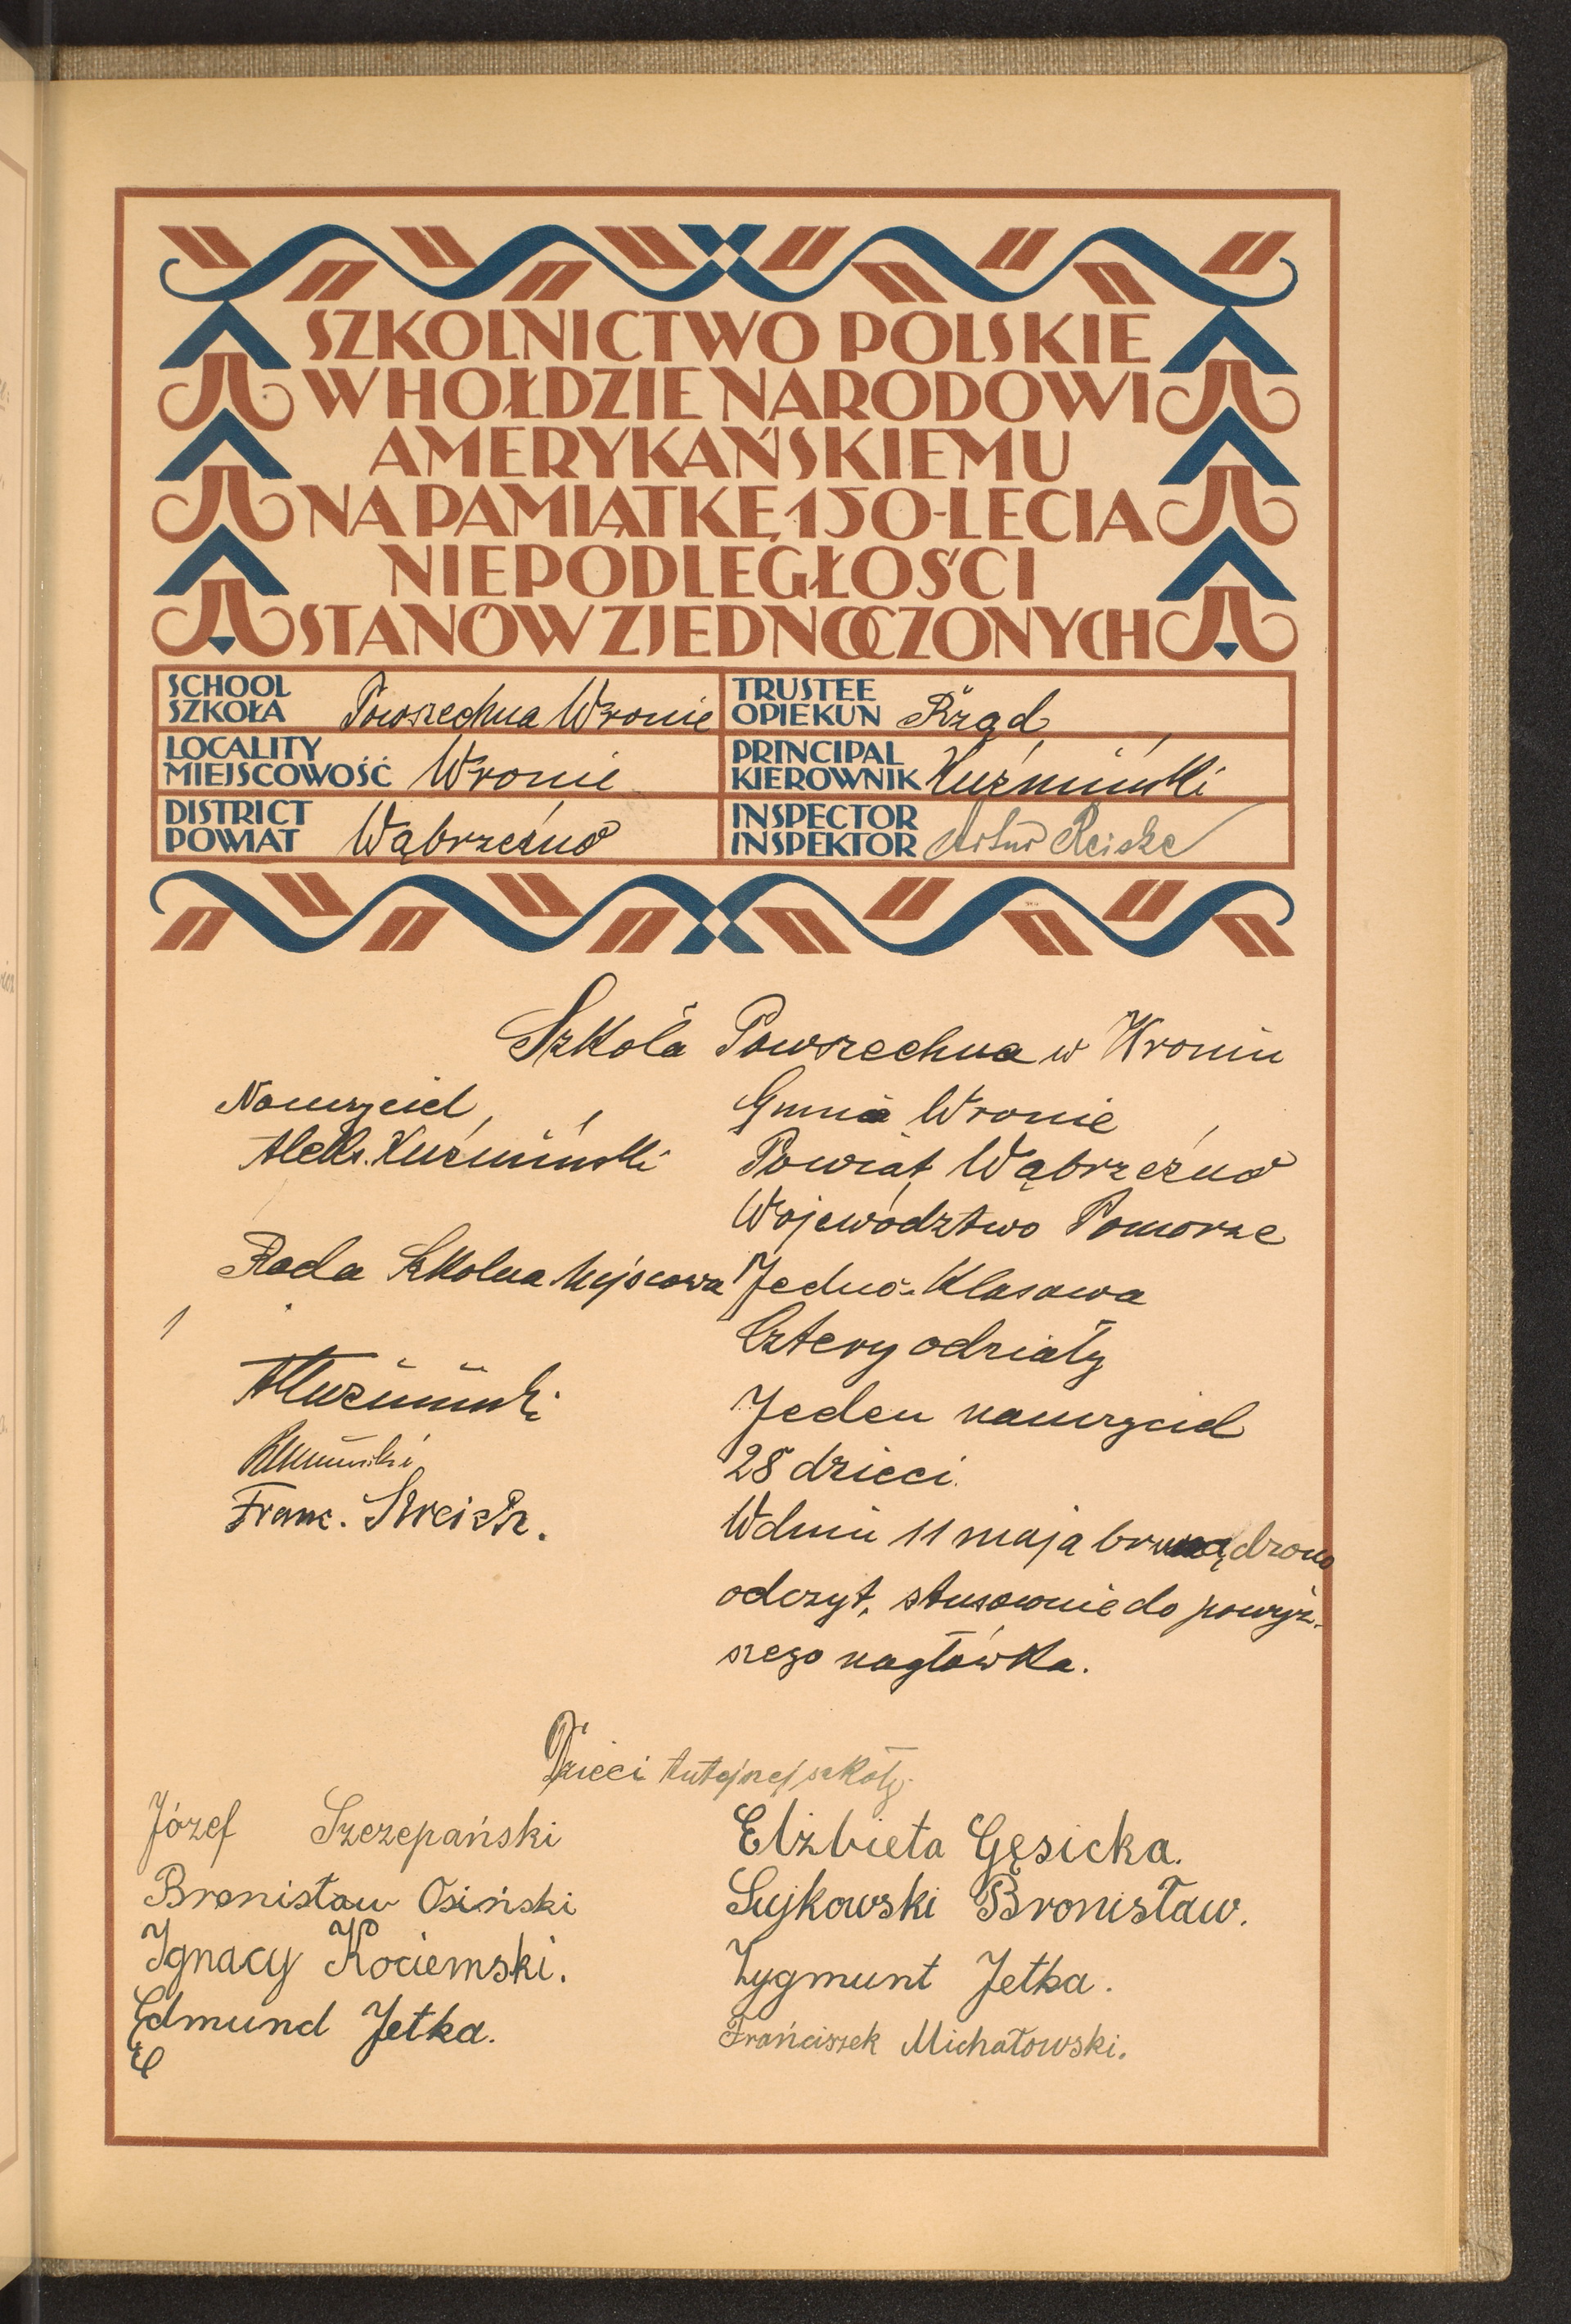 SZKOLNICTWO POLSKIE
W HOŁDZIE NARODOWI
AMERYKAŃSKIEMU
NA PAMIĄTKĘ 150-LECIA
NIEPODLEGŁOŚCI
STANÓW ZJEDNOCZONYCH
SCHOOL
SZKOŁA Powszechna Wronie
TRUSTEE
OPIEKUN Rząd
LOCALITY
MIEJSCOWOŚĆ Wronie
PRINCIPAL
KIEROWNIK Kuźmiński
DISTRICT
POWIAT Wąbrzeźno
INSPECTOR
INSPEKTOR Artur Reiske
Szkoła Powszechna w Wroniu
Nauczyciel
Aleks. Kuźmiński
Rada Szkolna Miejscowa
AKuźmiński
Franc.
Gmina Wronie
Powiat Wąbrzeźno
Województwo Pomorze
Jedno-Klasowa
Cztery odziały
Jeden nauczyciel
28 dzieci.
W dniu 11 maja br urządzono
odczyt, stusownie do powyż-
szego nagłówka.
Dzieci tutejszej szkoły.
Józef Szczepański
Bronisław Osiński
Ignacy Kociemski.
Edmund Jetka.
E
Elżbieta Gęsicka.
Sujkowski Bronisław.
Zygmunt Jetka.
Frańciszek Michałowski.